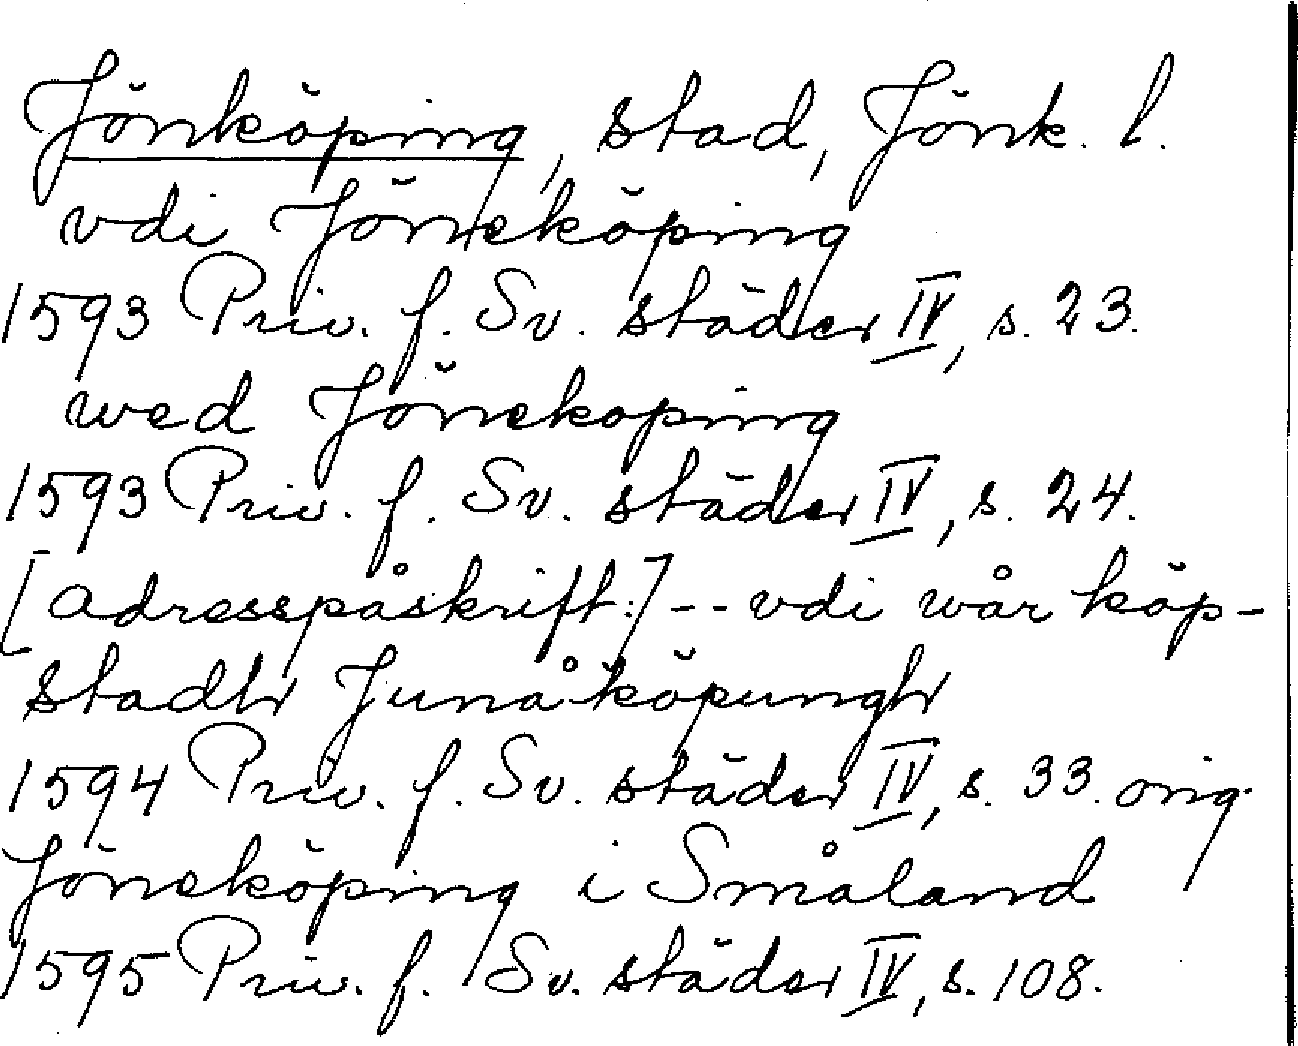 Jönköping, stad, Jönk. l.
vdi Jöneköping
1593 Priv. f. Sv. städer IV, s. 23.
wed Jönekoping
1593 Priv. f. Sv. städer IV, s. 24.
[adresspåskrift:] -- vdi wår köp-
stadh Junåköpungh
1594 Priv. f. Sv. städer IV, s. 33. orig.
Jöneköping i Småland
1595 Priv. f. Sv. städer IV, s. 108.